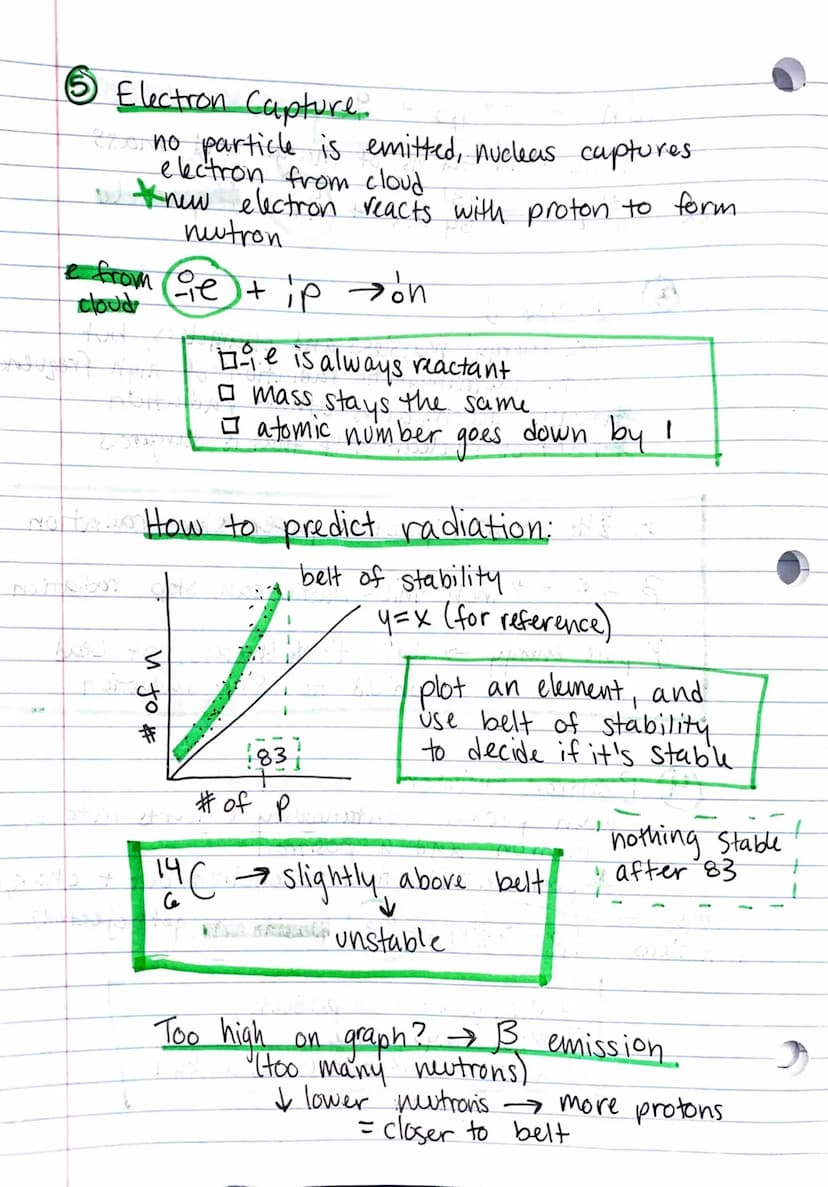 ⑤ Electron Capture
no particle is emitted, nucleas captures
electron from cloud
★ new electron reacts with proton to form
neutron
e from
cloud
⁰₋₁e + ¹₁p → ¹₀n
□ ⁰₋₁e is always reactant
□ mass stays the same
□ atomic number goes down by 1
How to predict radiation:
belt of stability
y=x (for reference)
# of n
83
# of p
plot an element, and
use belt of stability
to decide if it's stable
nothing stable
after 83
¹⁴₆C → slightly above belt
↓
unstable
Too high on graph? → β emission
(too many neutrons)
↓ lower neutrons → more protons
= closer to belt